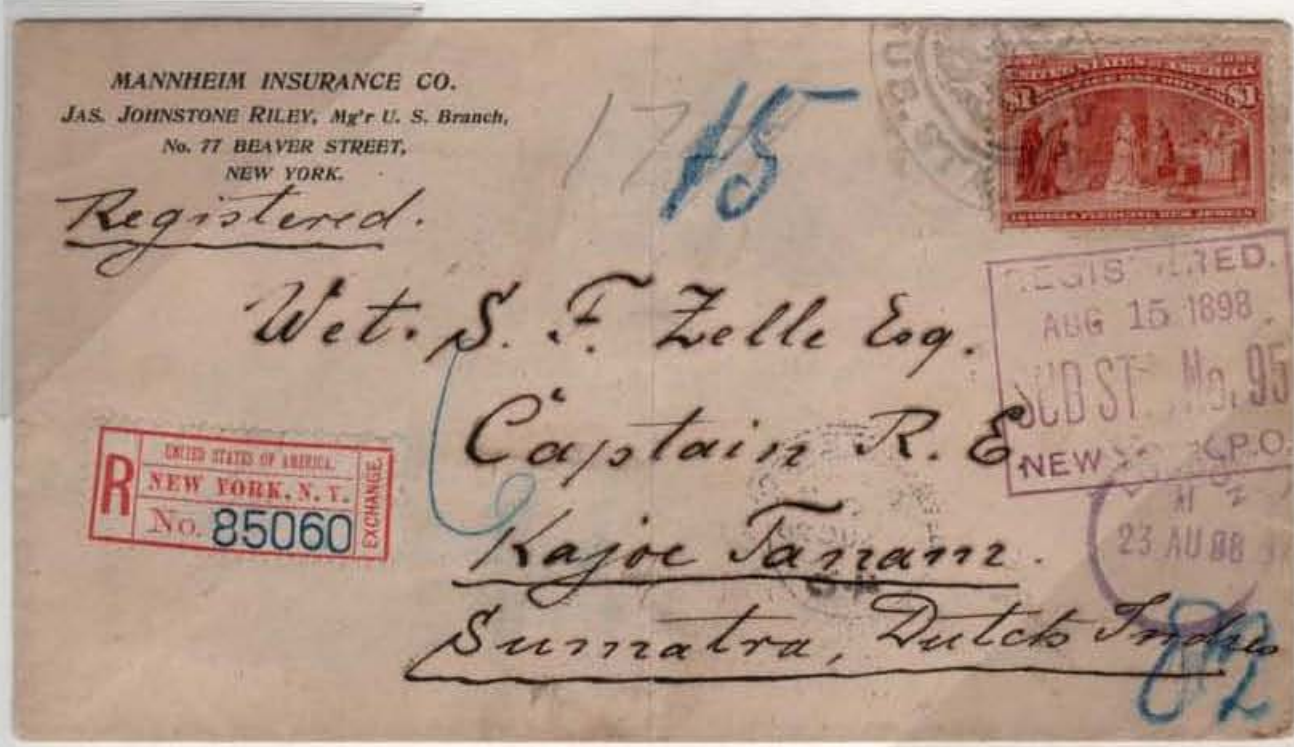 MANNHEIM INSURANCE CO.
JAS. JOHNSTONE RILEY, Mg'r U. S. Branch,
No. 77 BEAVER STREET,
NEW YORK.
Registered.
15
UNITED STATES OF AMERICA
$1 $1
ISABELLA PLEDGING HER JEWELS
REGISTERED.
AUG 15 1898
SUB ST. No. 95
NEW P.O.
Wet. S. F. Zelle Esq.
Captain R. E.
Kajoe Tanam.
Sumatra, Dutch Indies
R
UNITED STATES OF AMERICA.
NEW YORK, N. Y.
No. 85060
EXCHANGE
23 AU 98
82